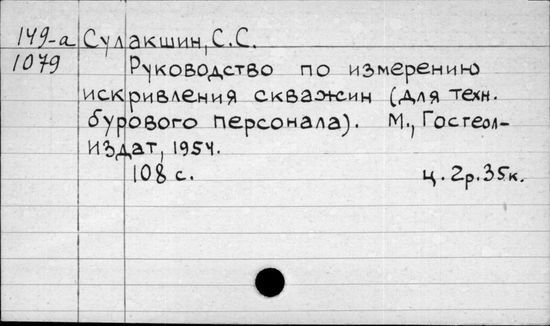 149-а Сулакшин, С.С.
1079 Руководство по измерению
искривления скважин (для техн.
бурового персонала). М., Госгеол-
издат, 1954.
108 с. ц. 2р.35к.